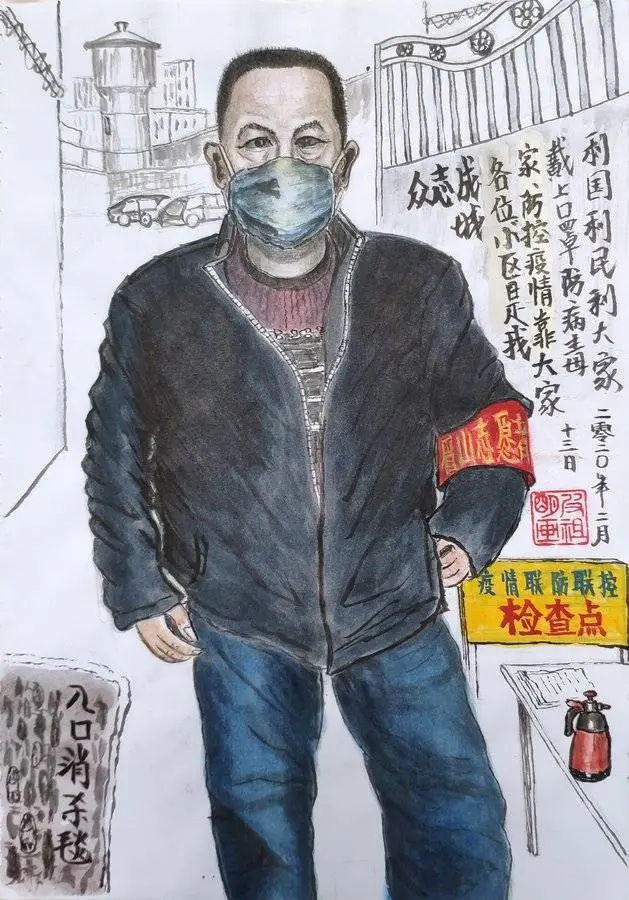 众志
成城
各位小区是我
家防控疫情靠大家
戴上口罩防病毒
利国利民利大家
二零二0年二月
十三日
眉山志愿者
疫情联防联控
检查点
入口消杀毯